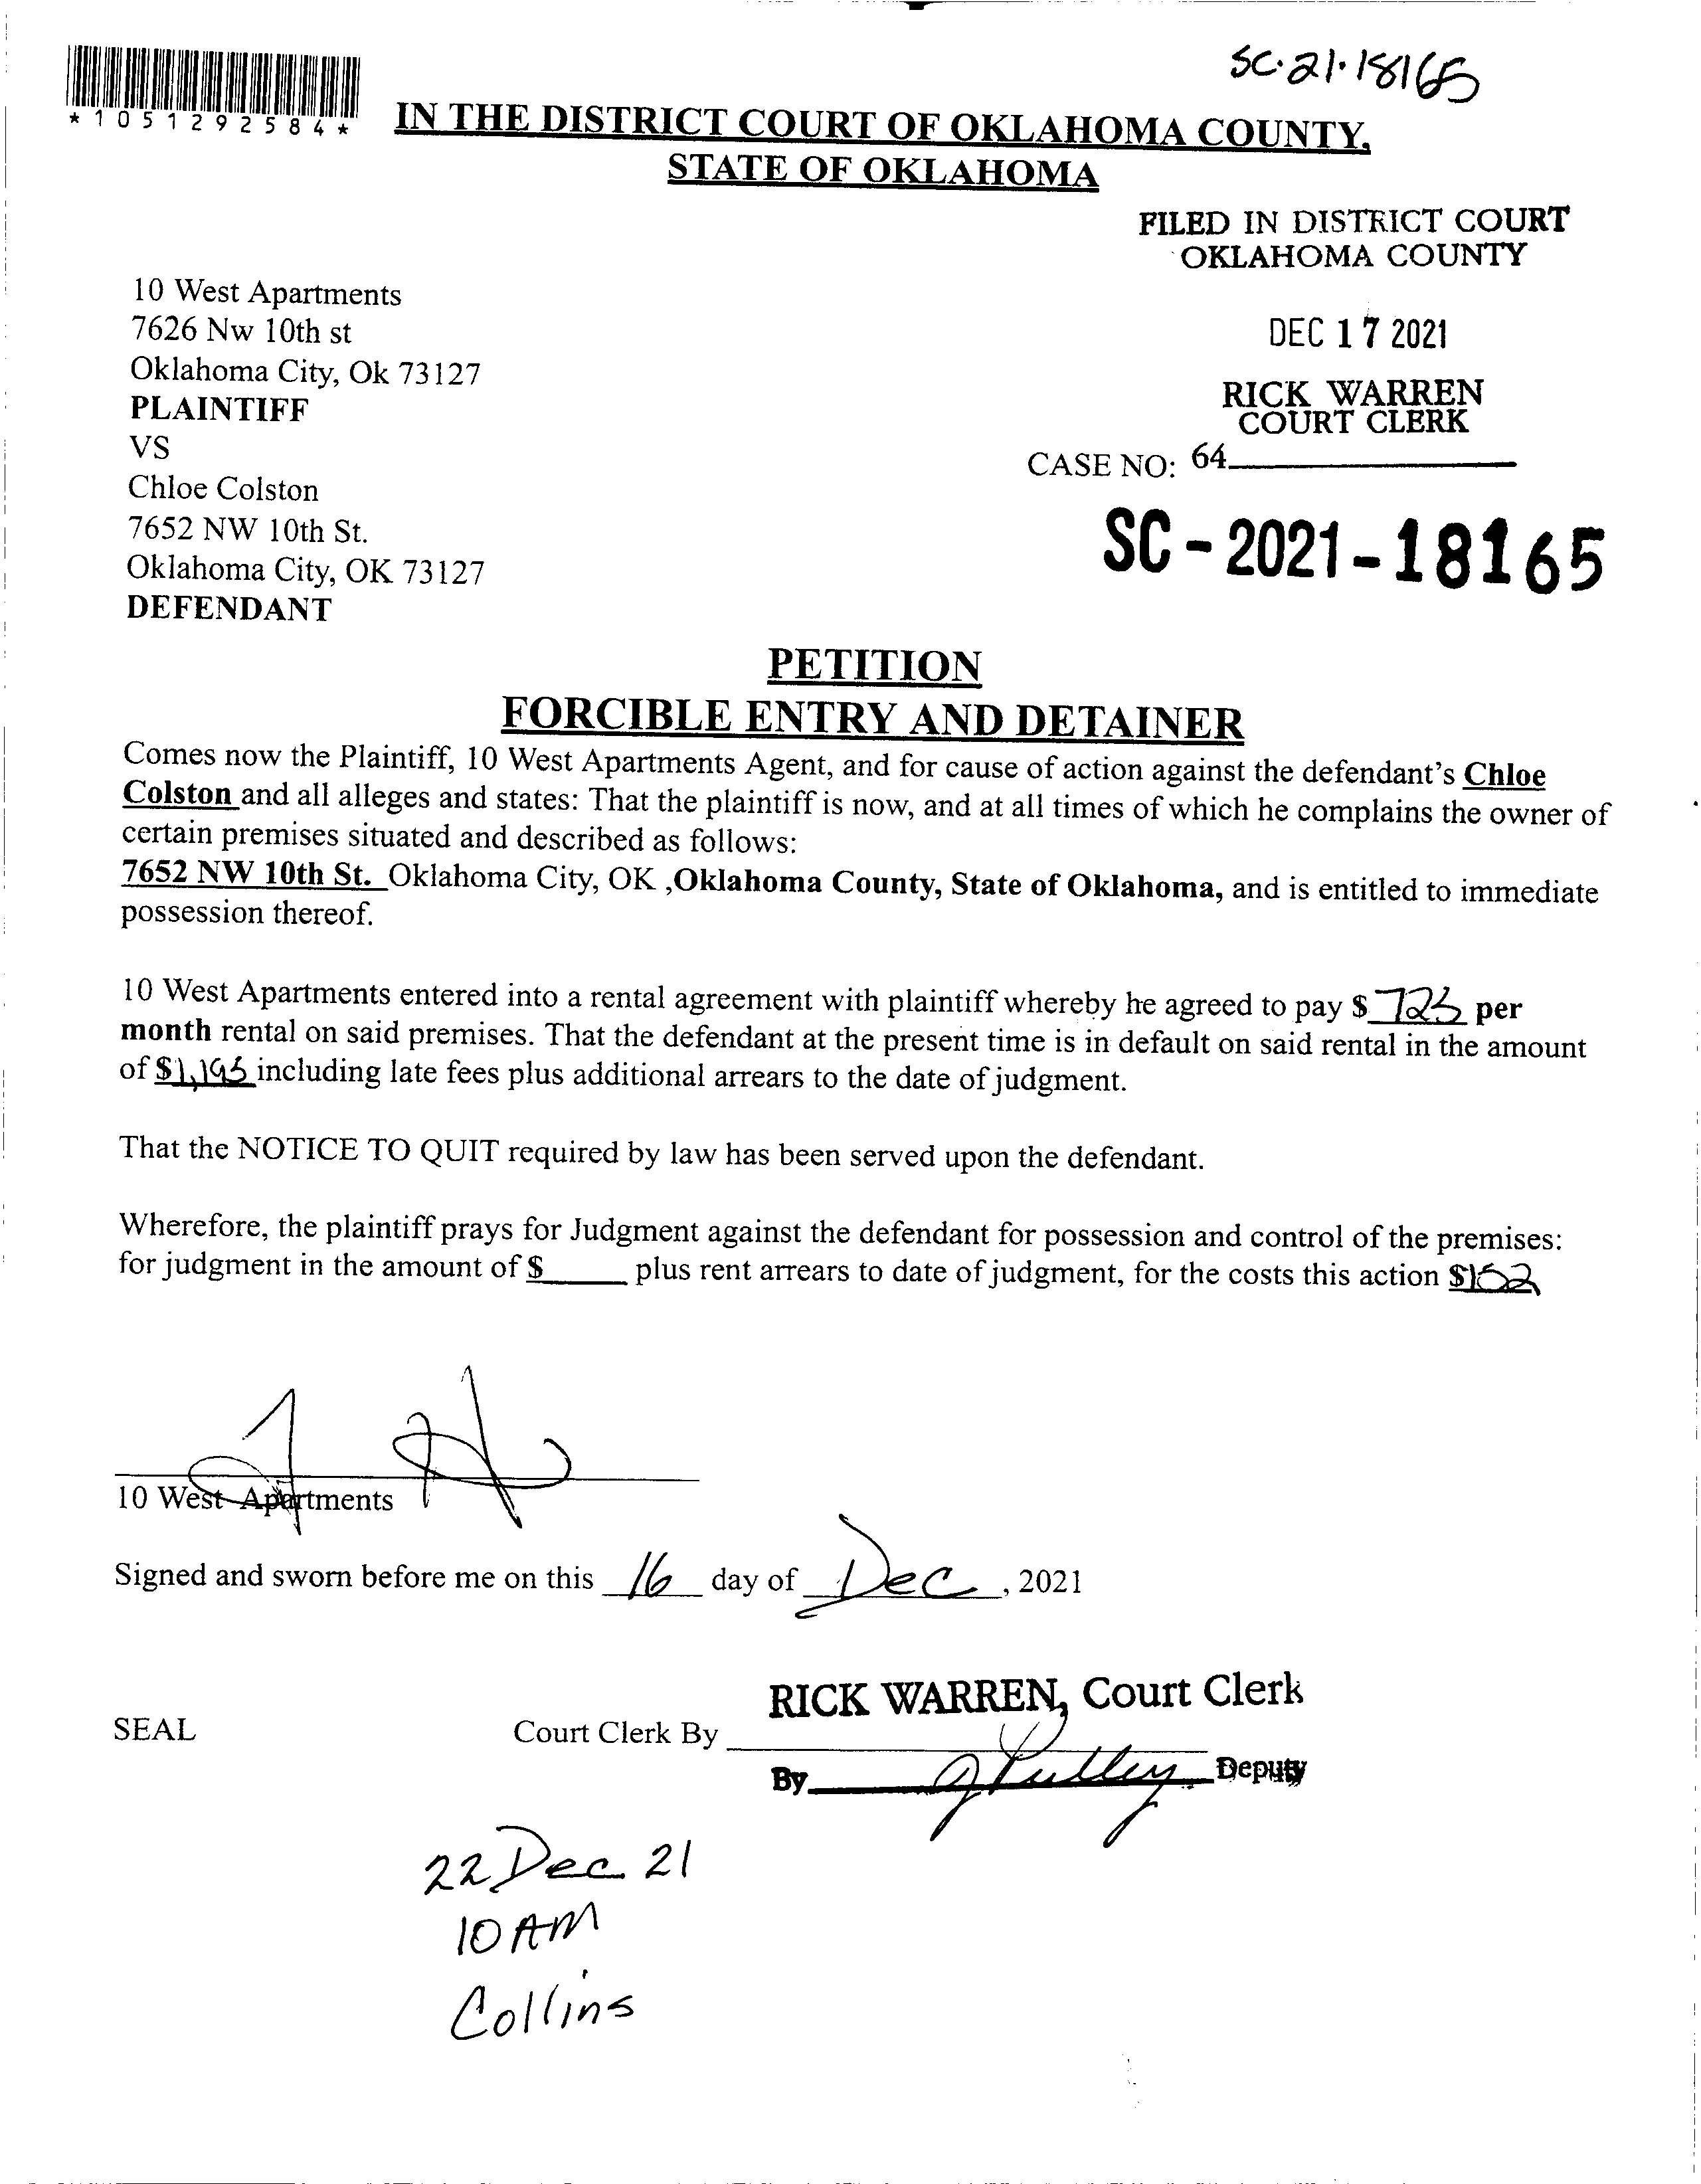 SC-21-18165
*1051292584*
IN THE DISTRICT COURT OF OKLAHOMA COUNTY,
STATE OF OKLAHOMA
FILED IN DISTRICT COURT
OKLAHOMA COUNTY
10 West Apartments
7626 Nw 10th st
Oklahoma City, Ok 73127
PLAINTIFF
VS
Chloe Colston
7652 NW 10th St.
Oklahoma City, OK 73127
DEFENDANT
DEC 17 2021
RICK WARREN
COURT CLERK
CASE NO: 64
SC-2021-18165
PETITION
FORCIBLE ENTRY AND DETAINER
Comes now the Plaintiff, 10 West Apartments Agent, and for cause of action against the defendant's Chloe
Colston and all alleges and states: That the plaintiff is now, and at all times of which he complains the owner of
certain premises situated and described as follows:
7652 NW 10th St. Oklahoma City, OK ,Oklahoma County, State of Oklahoma, and is entitled to immediate
possession thereof.
10 West Apartments entered into a rental agreement with plaintiff whereby he agreed to pay $ 725 per
month rental on said premises. That the defendant at the present time is in default on said rental in the amount
of $1,195 including late fees plus additional arrears to the date of judgment.
That the NOTICE TO QUIT required by law has been served upon the defendant.
Wherefore, the plaintiff prays for Judgment against the defendant for possession and control of the premises:
for judgment in the amount of $ plus rent arrears to date of judgment, for the costs this action $152
10 West Apartments
Signed and sworn before me on this 16 day of Dec, 2021
RICK WARREN, Court Clerk
SEAL Court Clerk By
By Deputy
22 Dec 21
10 AM
Collins